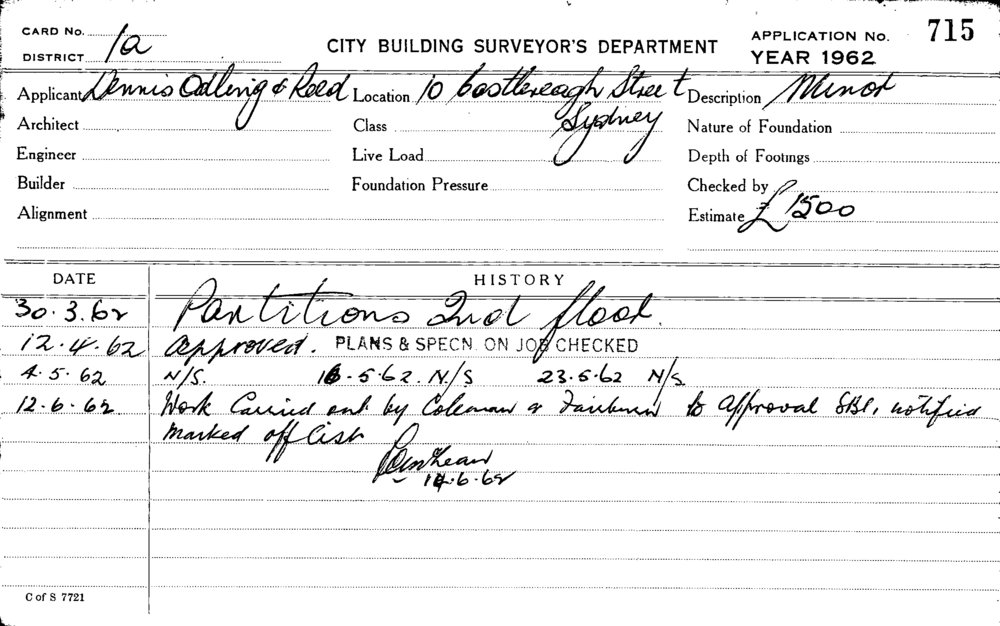 CARD No.
DISTRICT 1a
CITY BUILDING SURVEYOR'S DEPARTMENT
APPLICATION No. 715
YEAR 1962
Applicant Dennis Odling & Reed Location 10 Castlereagh Street Sydney Description Minor
Architect Class Nature of Foundation
Engineer Live Load Depth of Footings
Builder Foundation Pressure Checked by
Alignment Estimate £1500
DATE HISTORY
30.3.62 Partitions 2nd floor.
12.4.62 approved. PLANS & SPECN. ON JOB CHECKED
4.5.62 N/S. 16.5.62. N/S 23.5.62 N/S
12.6.62 Work Carried out by Coleman & to approval SBI, notified
marked off list
14.6.62
C of S 7721